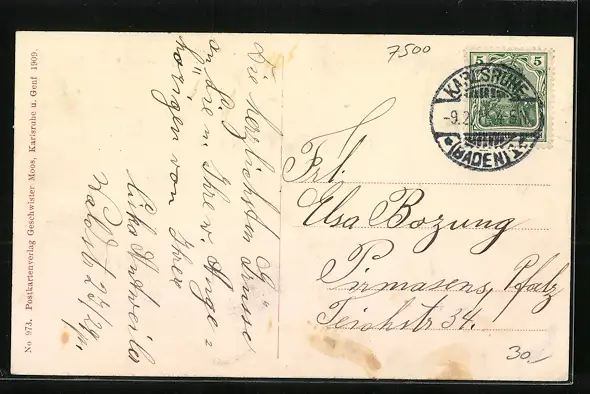 No 973. Postkartenverlag Geschwister Moos, Karlsruhe u. Genf 1909.
Die herzlichsten Grüsse
an Sie u. Ihre w. Ange=
hörigen von Ihrer
7500
5 5
KARLSRUHE
-9.2
(BADEN)
Frl.
Elsa Bozung
Pirmasens, Pfalz
Teichstr 34.
30.-